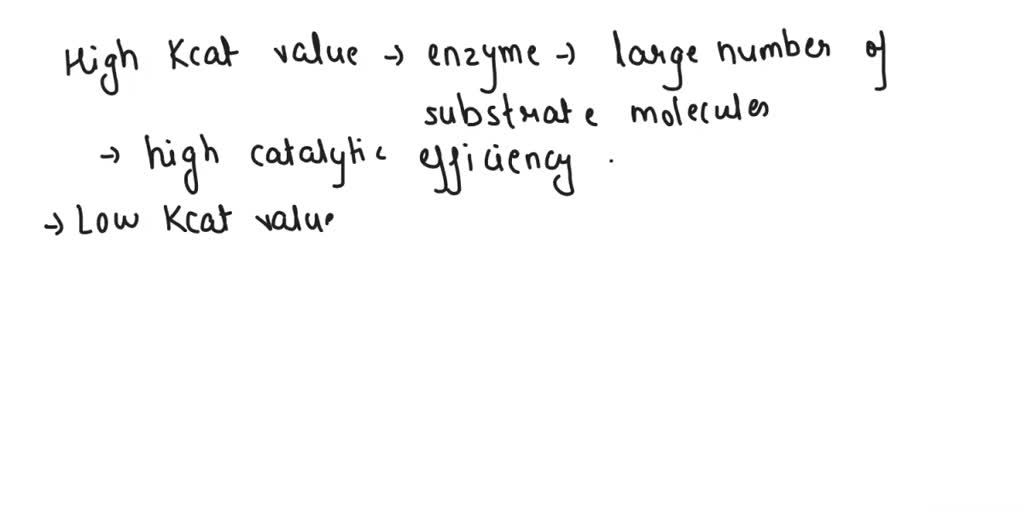 High Kcat value → enzyme → large number of
substrate molecules
→ high catalytic efficiency .
→ Low Kcat value